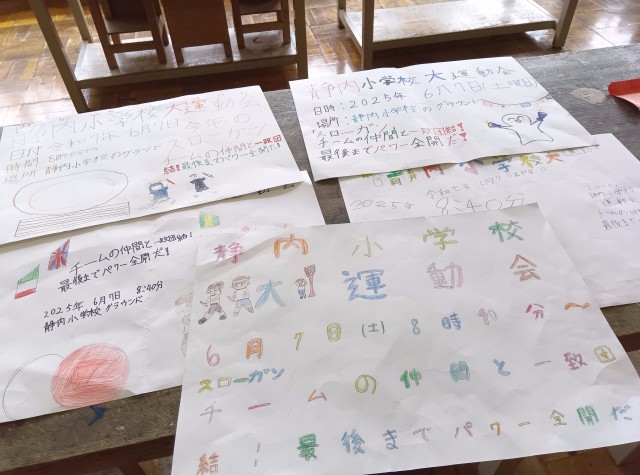 静内小学校大運動会
日付 令和7年 6月7日
時間 8時40分
場所 静内小学校のグラウンド
スローガン
チームの仲間と一致団
結!最後までパワー全開だ!
静内小学校 大運動会
日時:2025年 6月7日(土曜日)
場所:静内小学校のグラウンド
スローガン
チームの仲間と一致団結!
最後までパワー全開だ!
令和七年
2025年 8:40分
チームの仲間と一致団結!
最後までパワー全開だ!
2025年 6月7日 8:40分
静内小学校 グラウンド
静内小学校
大運動会
6月7日(土)8時40分〜
スローガン
チームの仲間と一致団
結!最後までパワー全開だ